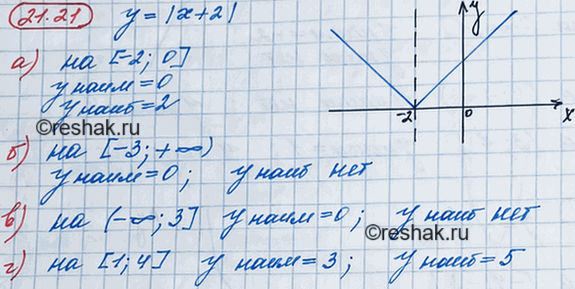 21.21 y = |x+2|
y
а) на [-2; 0]
y наим = 0
y наиб = 2
-2 0 x
©reshak.ru
б) на [-3; +∞)
y наим = 0; y наиб нет
©reshak.ru
в) на (-∞; 3] y наим = 0; y наиб нет
г) на [1; 4] y наим = 3; y наиб = 5